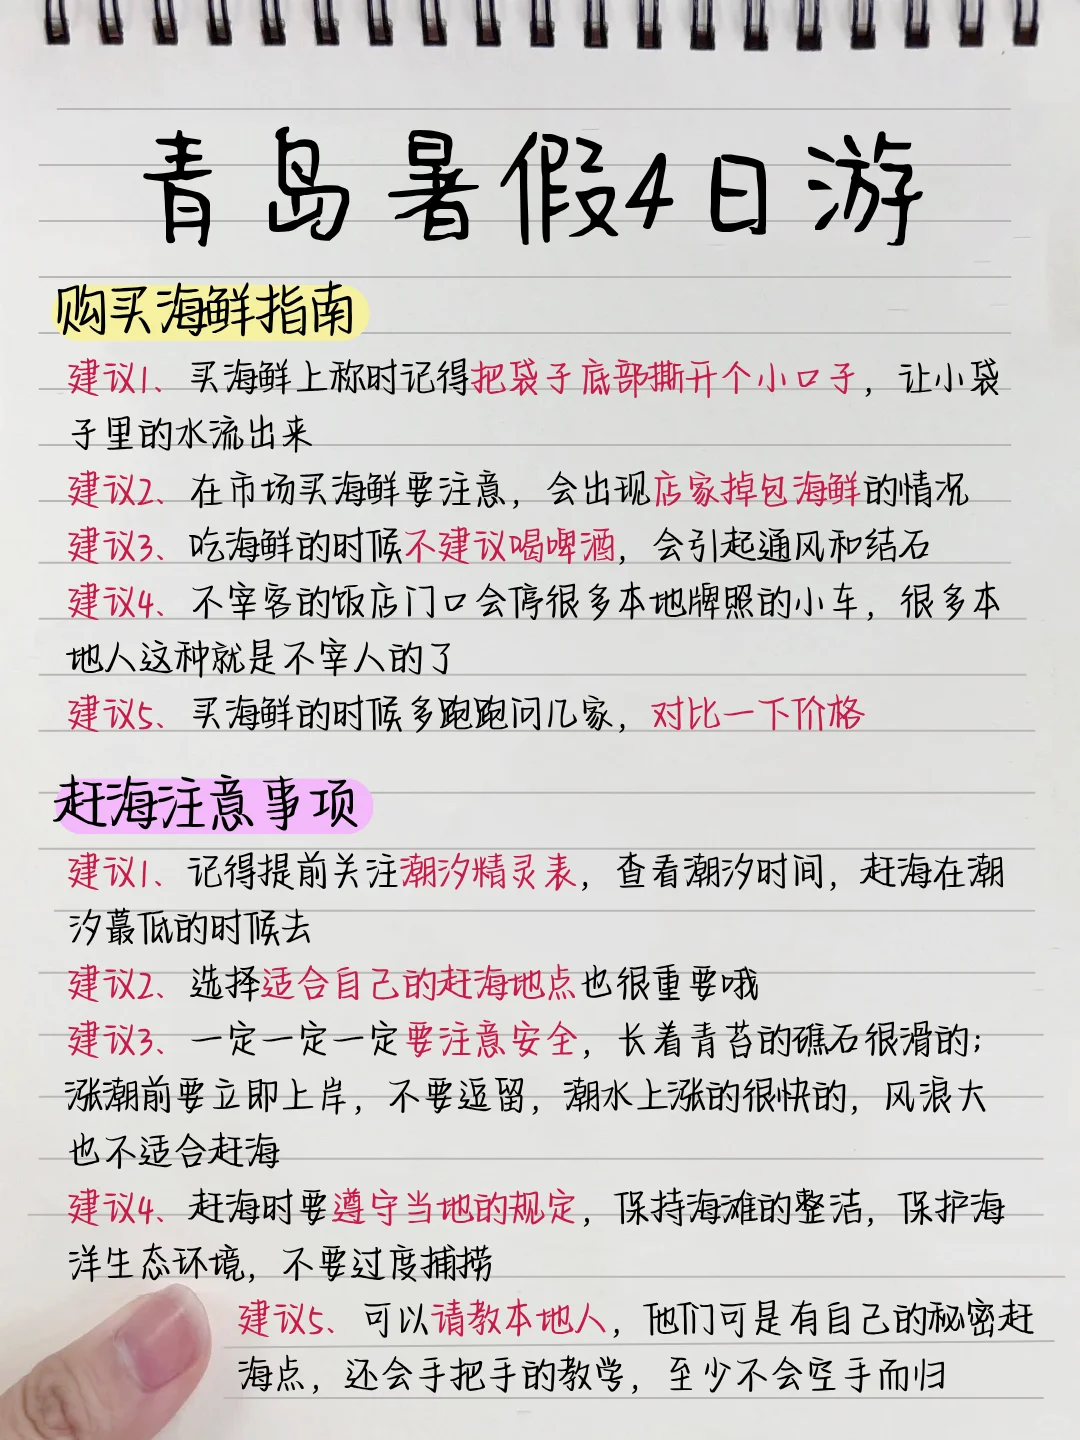 青岛暑假4日游
购买海鲜指南
建议1、买海鲜上称时记得把袋子底部撕开个小口子，让小袋
子里的水流出来
建议2、在市场买海鲜要注意，会出现店家掉包海鲜的情况
建议3、吃海鲜的时候不建议喝啤酒，会引起通风和结石
建议4、不宰客的饭店门口会停很多本地牌照的小车，很多本
地人这种就是不宰人的了
建议5、买海鲜的时候多跑跑问几家，对比一下价格
赶海注意事项
建议1、记得提前关注潮汐精灵表，查看潮汐时间，赶海在潮
汐最低的时候去
建议2、选择适合自己的赶海地点也很重要哦
建议3、一定一定一定要注意安全，长着青苔的礁石很滑的；
涨潮前要立即上岸，不要逗留，潮水上涨的很快的，风浪大
也不适合赶海
建议4、赶海时要遵守当地的规定，保持海滩的整洁，保护海
洋生态环境，不要过度捕捞
建议5、可以请教本地人，他们可是有自己的秘密赶
海点，还会手把手的教学，至少不会空手而归